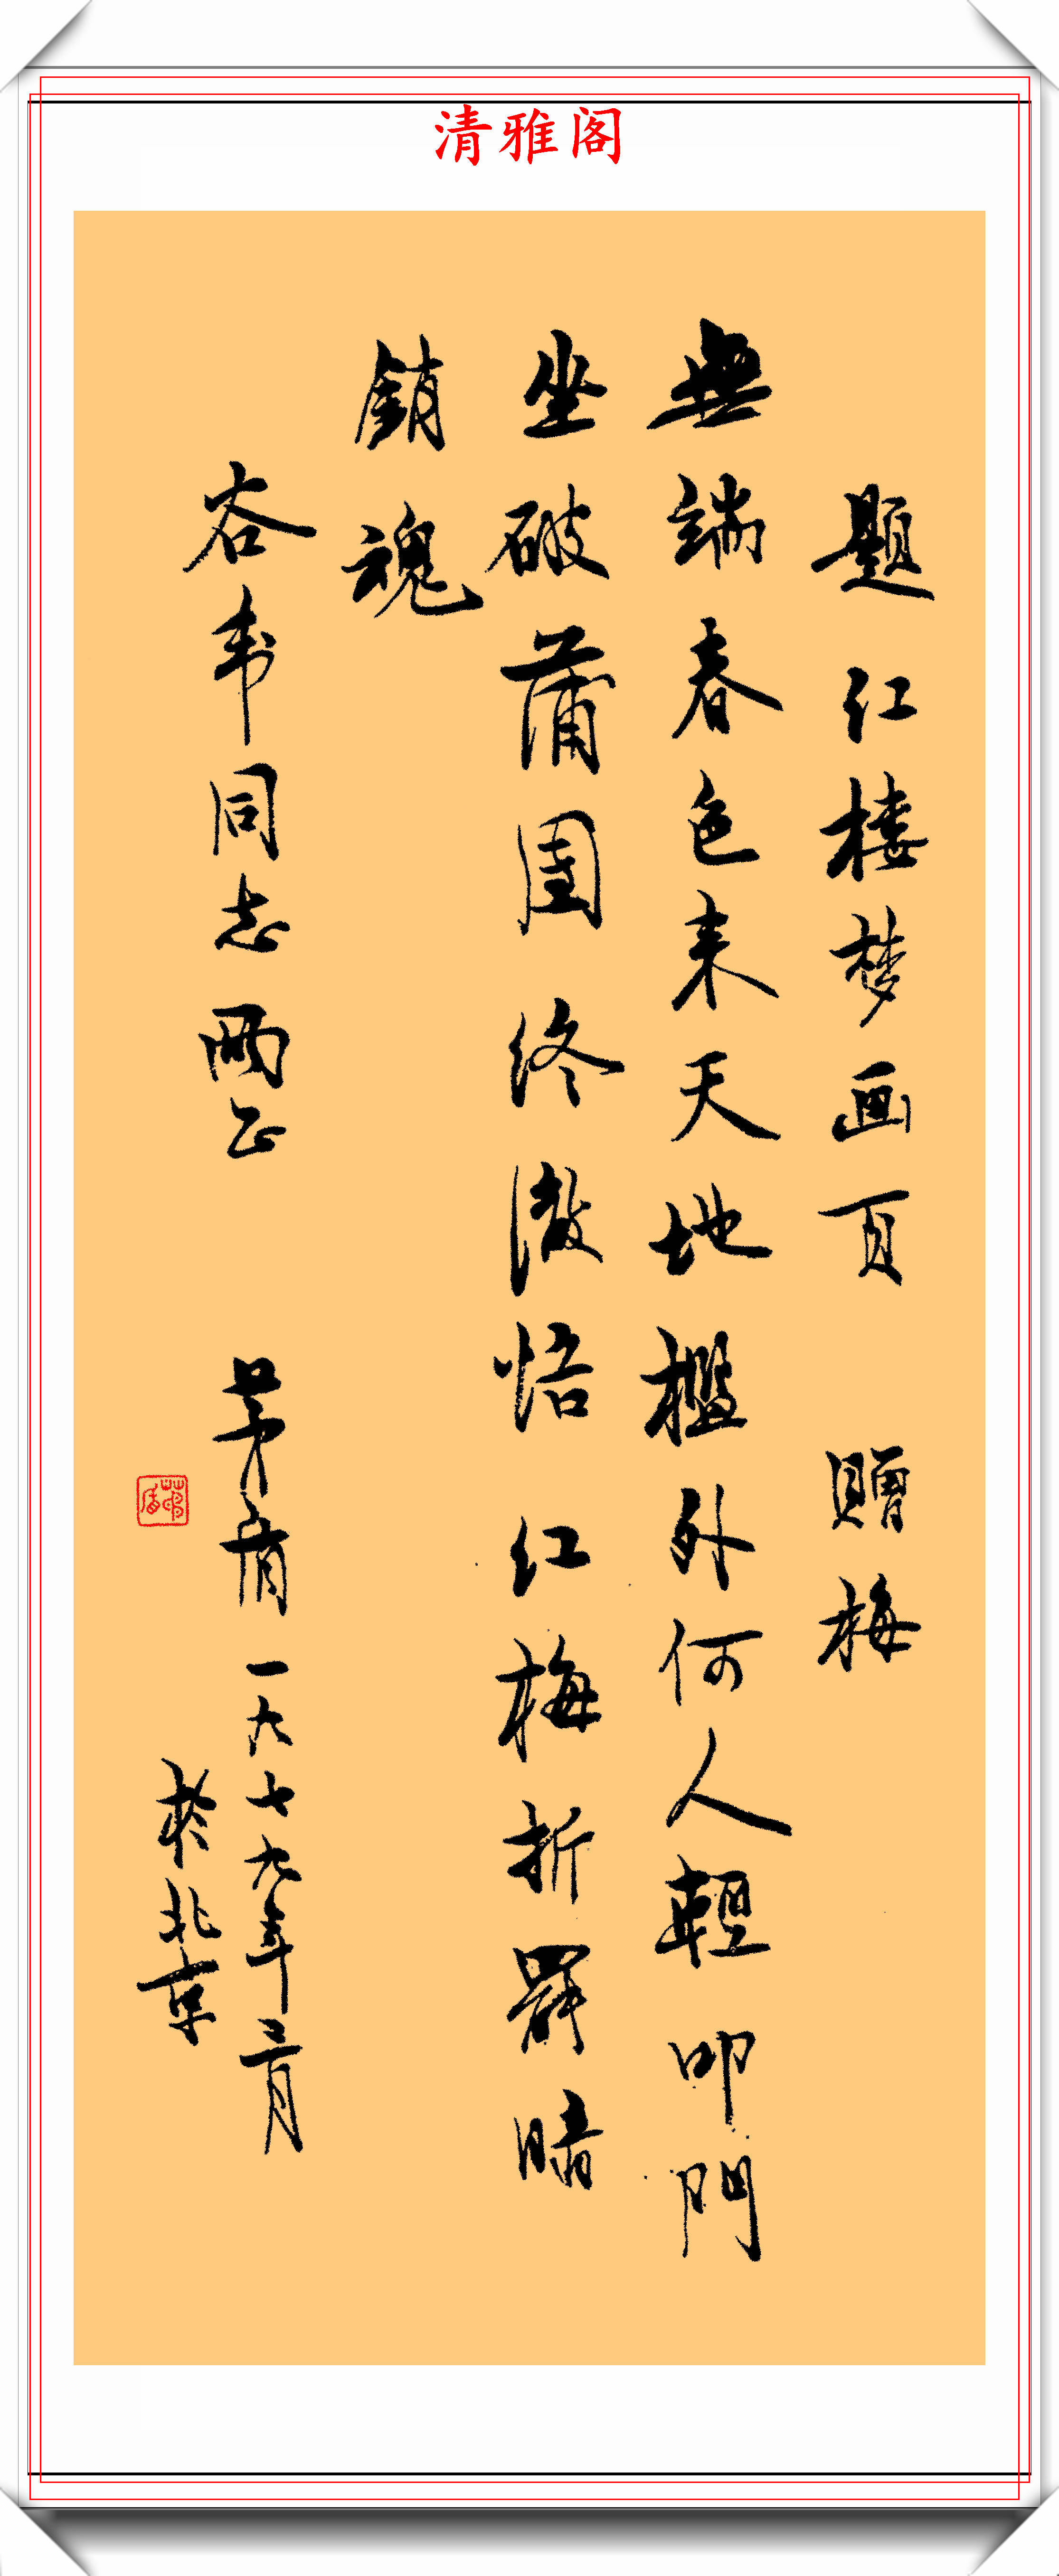 清雅阁
题红楼梦画页 赠梅
無端春色来天地檻外何人輕叩門
坐破蒲团终澈悟红梅折罢暗
銷魂
谷苇同志两正
茅盾 一九七九年三月
於北京
茅盾